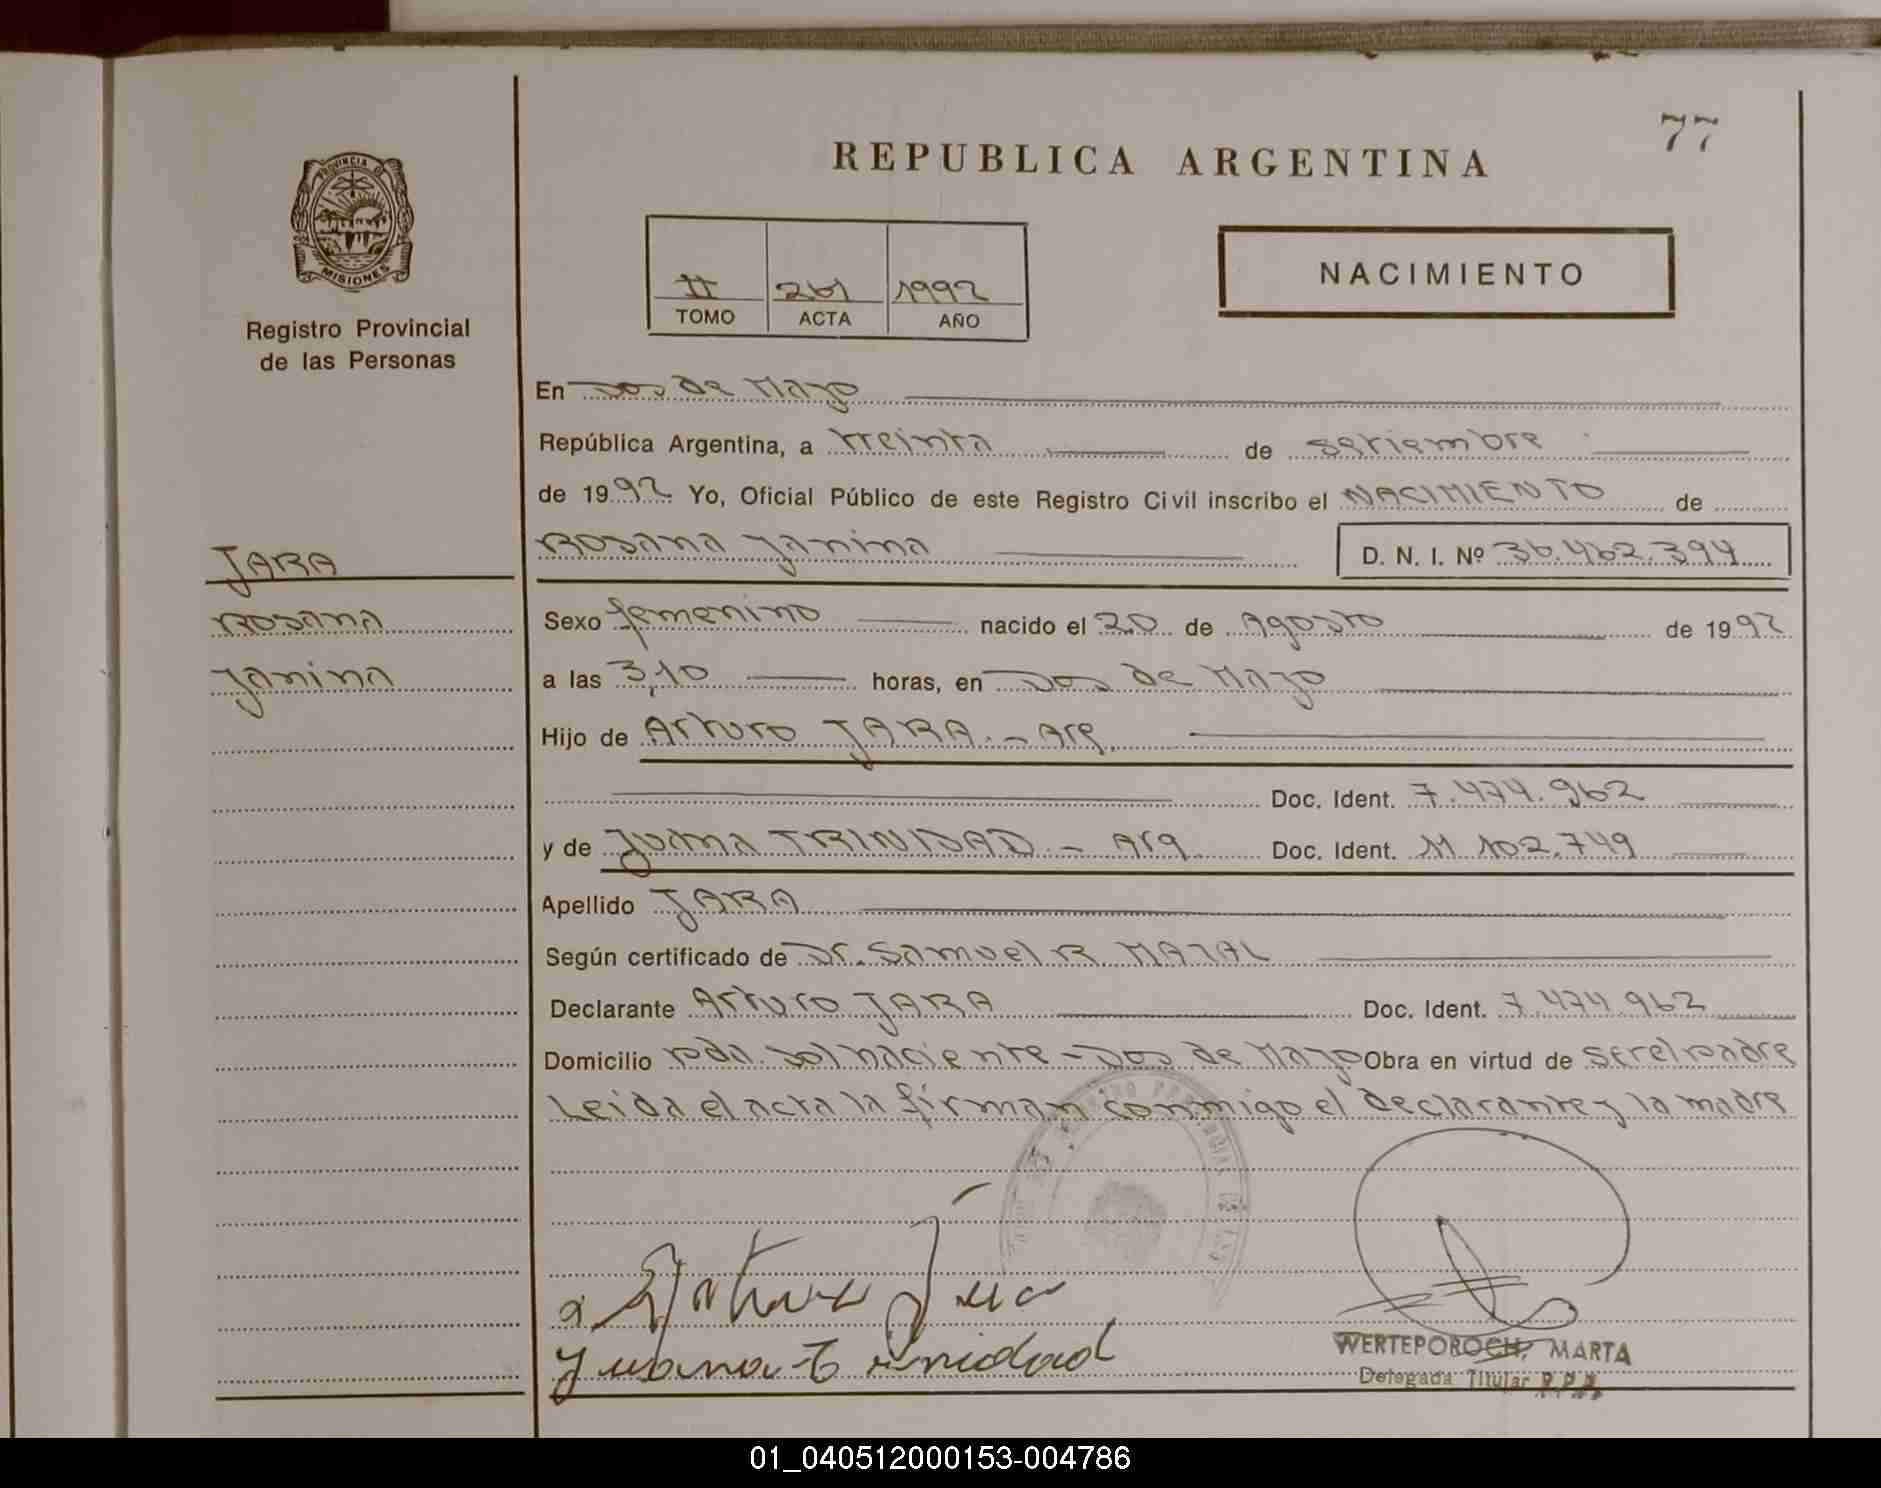 77
REPUBLICA ARGENTINA
PROVINCIA DE
MISIONES
Registro Provincial
de las Personas
II 261 1992
TOMO ACTA AÑO
NACIMIENTO
En Dos de Mayo
República Argentina, a treinta de setiembre
de 1992 Yo, Oficial Público de este Registro Civil inscribo el NACIMIENTO de
JARA
Rosana Yanina D. N. I. Nº 36.462.394
Rosana
Sexo femenino nacido el 20 de Agosto de 1992
Yanina
a las 3,10 horas, en Dos de Mayo
Hijo de Arturo JARA.- Arg.
Doc. Ident. 7.474.962
y de Juana TRINIDAD - Arg Doc. Ident. 11.102.749
Apellido JARA
Según certificado de Dr. Samuel R. MAZAL
Declarante Arturo JARA Doc. Ident. 7.474.962
Domicilio Pda. Sol naciente - Dos de Mayo Obra en virtud de ser el padre
Leida el acta la firman conmigo el declarante y la madre
Arturo Jara
Juana Trinidad
WERTEPOROCH, MARTA
Delegada Titular R.P.P.
01_040512000153-004786